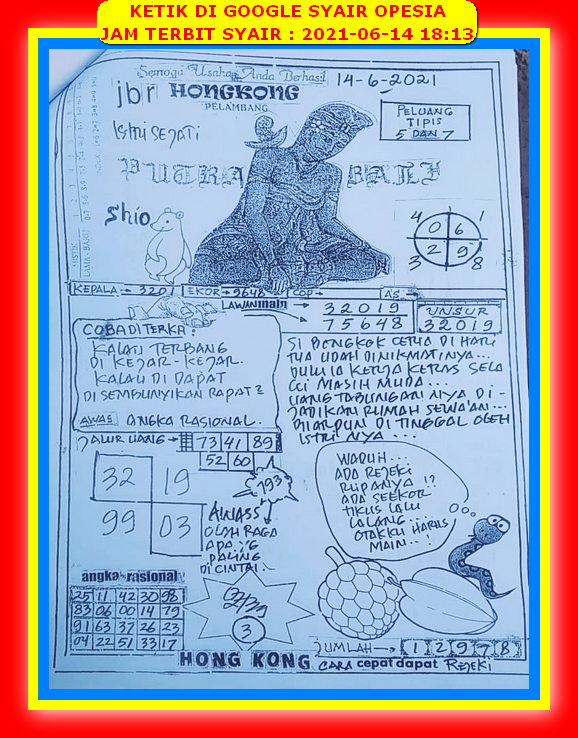 KETIK DI GOOGLE SYAIR OPESIA
JAM TERBIT SYAIR : 2021-06-14 18:13
Semoga Usaha Anda Berhasil
14-6-2021
jbr HONGKONG
PELAMBANG
PELUANG
TIPIS
5 DAN 7
Istri SEJATI
PUTRA BALI
Shio
4 1
0 6
2 9
3 8
KEPALA 3201 EKOR 9648 COP AS
LAWAN main
3 2 0 1 9
7 5 6 4 8
UNSUR
3 2 0 1 9
COBA DITERKA:
KALAU TERBANG
DI KEJAR-KEJAR.
KALAU DI DAPAT
DI SEMBUNYIKAN RAPAT2
AWAS ANGKA RASIONAL.
SI BONGKOK CERIA DI HARI
TUA UDAH DI NIKMATINYA...
DULU IA KERJA KERAS SELA
GI MASIH MUDA...
UANG TABUNGAN NYA DI-
JADIKAN RUMAH SEWA'AN...
BIARPUN DI TINGGAL OLEH
ISTRI NYA...
JALUR UANG 73 41 89
52 60
793
32 19
99 03
AWASS
OLAH RAGA
APA YG
PALING
DI CINTAI
WADUH...
ADA REJEKI
RUPANYA !?
ADA SEEKOR
TIKUS LALU
LALANG...
OTAKKU HARUS
MAIN..!
angka rasional
25 11 42 30 98
83 06 00 14 79
91 63 37 26 23
04 22 51 33 17
3
JUMLAH 1 2 9 7 8
HONG KONG CARA cepat dapat REJEKI